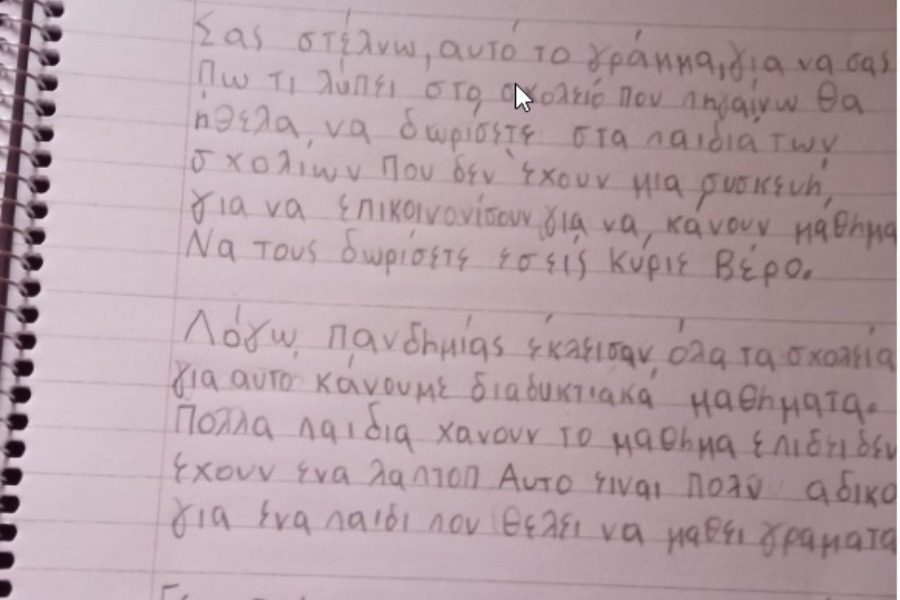 Σας στέλνω, αυτό το γράμμα, για να σας
πω τι λύπει στο σχολείο που πηγαίνω θα
ήθελα να δωρίσετε στα παιδιά των
σχολίων που δεν έχουν μια συσκευή,
για να επικοινονίσουν για να, κάνουν μαθημα
Να τους δωρίσετε εσείς Κύριε Βέρο.
Λόγω πανδημίας έκλεισαν όλα τα σχολεία
για αυτο κάνουμε διαδυκτιακά μαθηματα.
Πολλα παιδια χανουν το μαθημα επιδει δεν
εχουν ενα λαπτοπ Αυτο ειναι πολυ αδικο
για ενα παιδι που θελει να μαθει γραματα